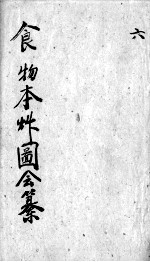 六
食物本艸圖会纂